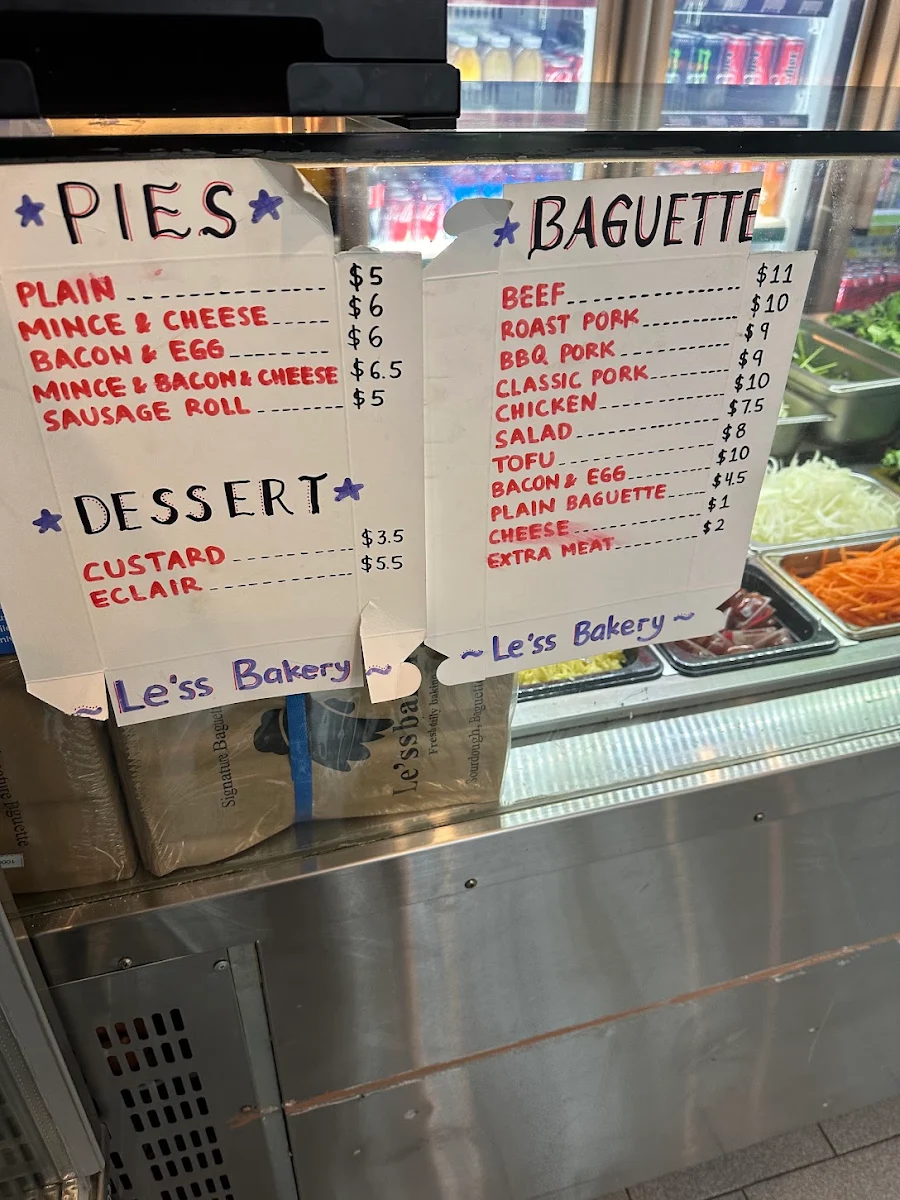 PIES
PLAIN $5
MINCE & CHEESE $6
BACON & EGG $6
MINCE & BACON & CHEESE $6.5
SAUSAGE ROLL $5
DESSERT
CUSTARD $3.5
ECLAIR $5.5
~ Le'ss Bakery ~
BAGUETTE
BEEF $11
ROAST PORK $10
BBQ PORK $9
CLASSIC PORK $9
CHICKEN $10
SALAD $7.5
TOFU $8
BACON & EGG $10
PLAIN BAGUETTE $4.5
CHEESE $1
EXTRA MEAT $2
~ Le'ss Bakery ~
Signature Baguett
Le'ss ba
Freshly bakin
Sourdough, Baguett